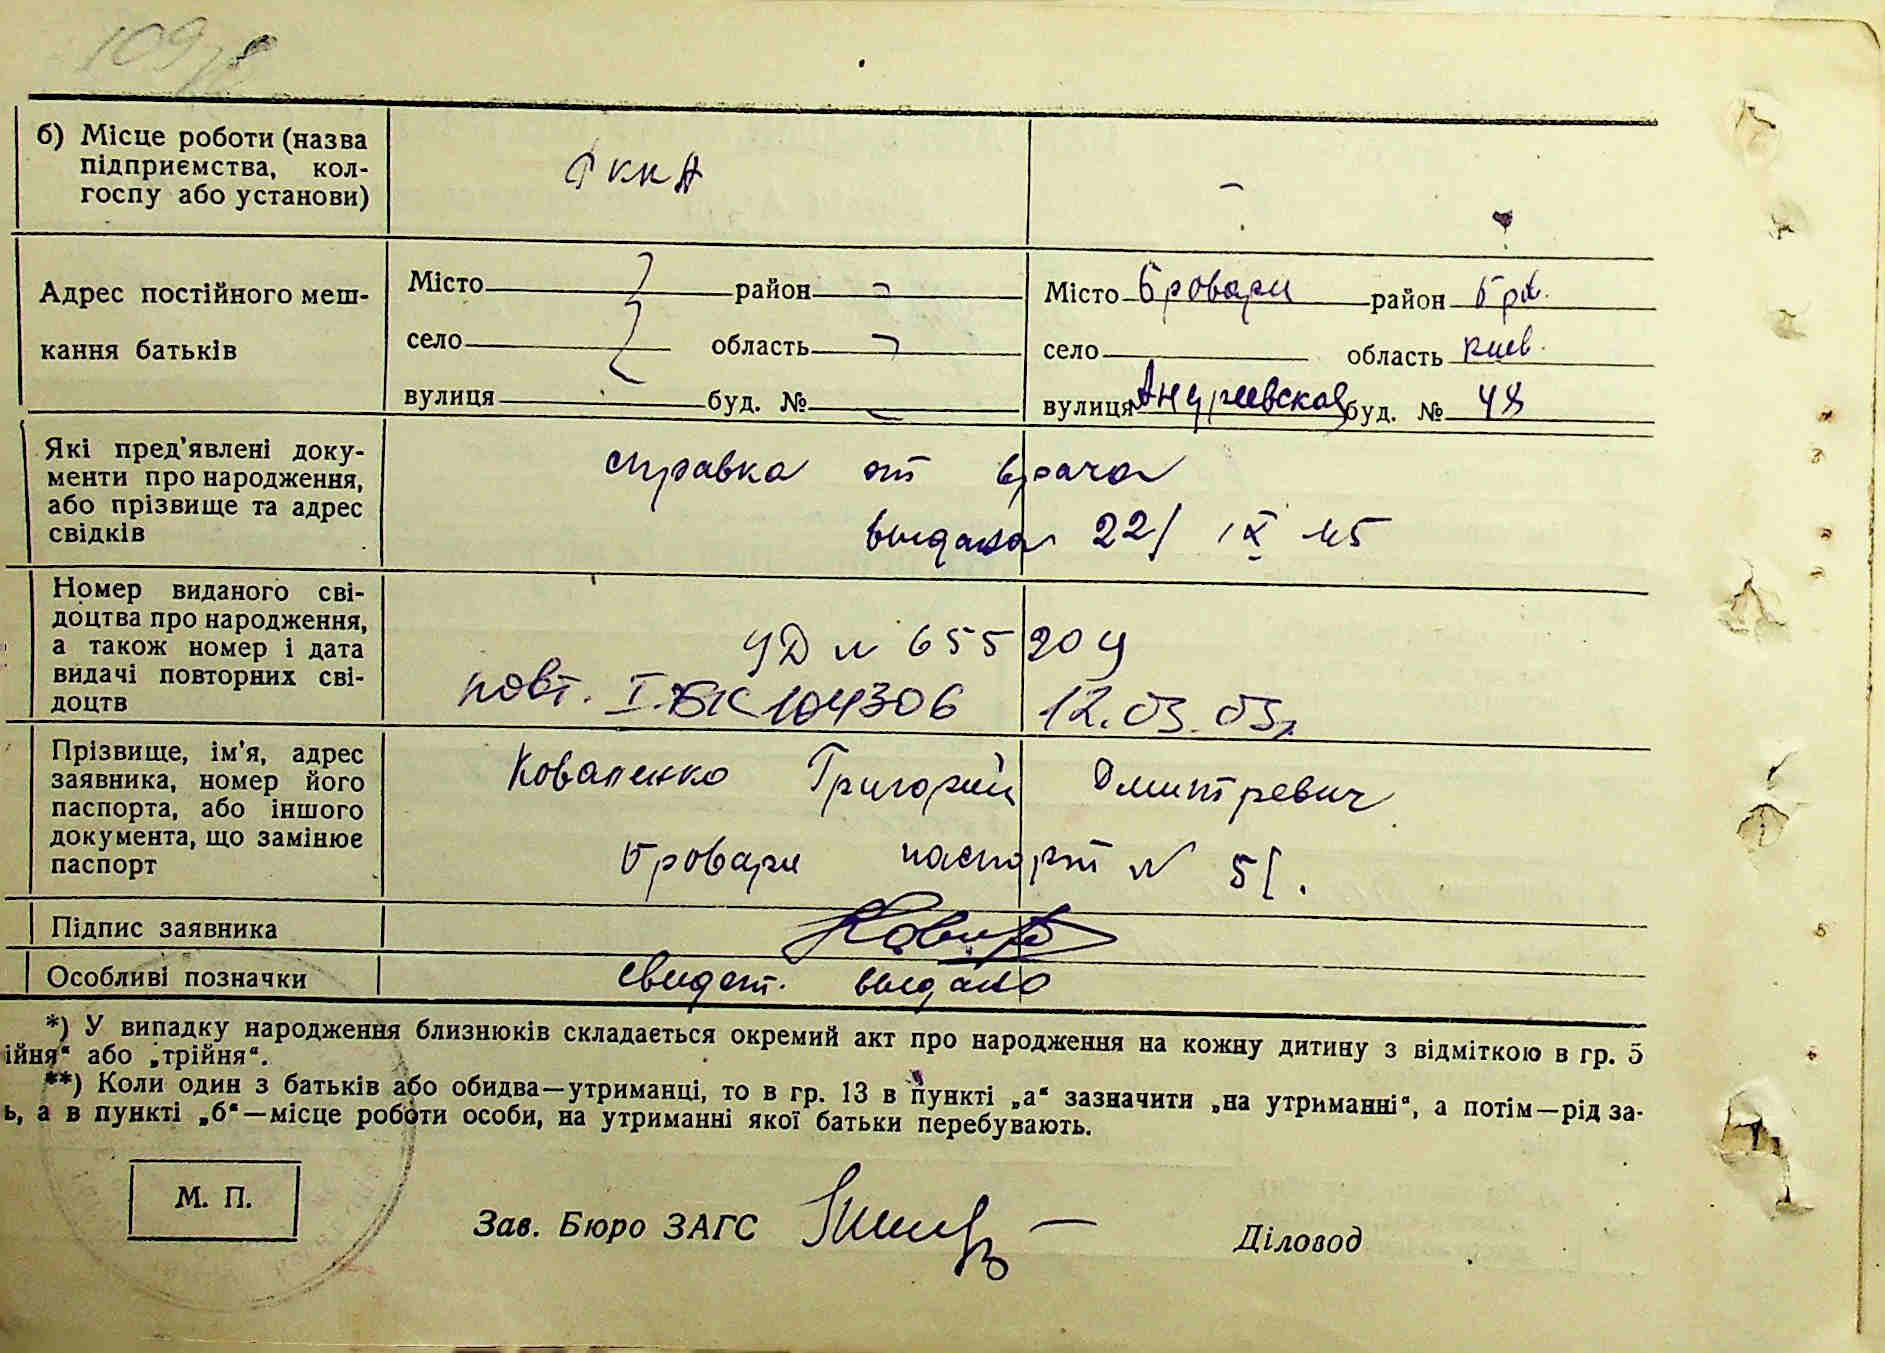 б) Місце роботи (назва
підприємства, кол-
госпу або установи)
РККА
-
Адрес постійного меш-
кання батьків
Місто район
село область
вулиця буд. №
Місто Бровари район Бр.
село область Киев.
вулиця Андреевская буд. № 48
Які пред'явлені доку-
менти про народження,
або прізвище та адрес
свідків
справка от врача
выдана 22/IX 45
Номер виданого сві-
доцтва про народження,
а також номер і дата
видачі повторних сві-
доцтв
УД N 655204
повт. I.БК 104306 12.03.03р
Прізвище, ім'я, адрес
заявника, номер його
паспорта, або іншого
документа, що замінює
паспорт
Коваленко Григорий Дмитревич
Бровари паспорт N
Підпис заявника
Особливі позначки
свидет. выдано
*) У випадку народження близнюків складається окремий акт про народження на кожну дитину з відміткою в гр. 5
ійня“ або „трійня“.
**) Коли один з батьків або обидва—утриманці, то в гр. 13 в пункті „а“ зазначити „на утриманні“, а потім—рід за-
ь, а в пункті „б“—місце роботи особи, на утриманні якої батьки перебувають.
М. П.
Зав. Бюро ЗАГС
Діловод